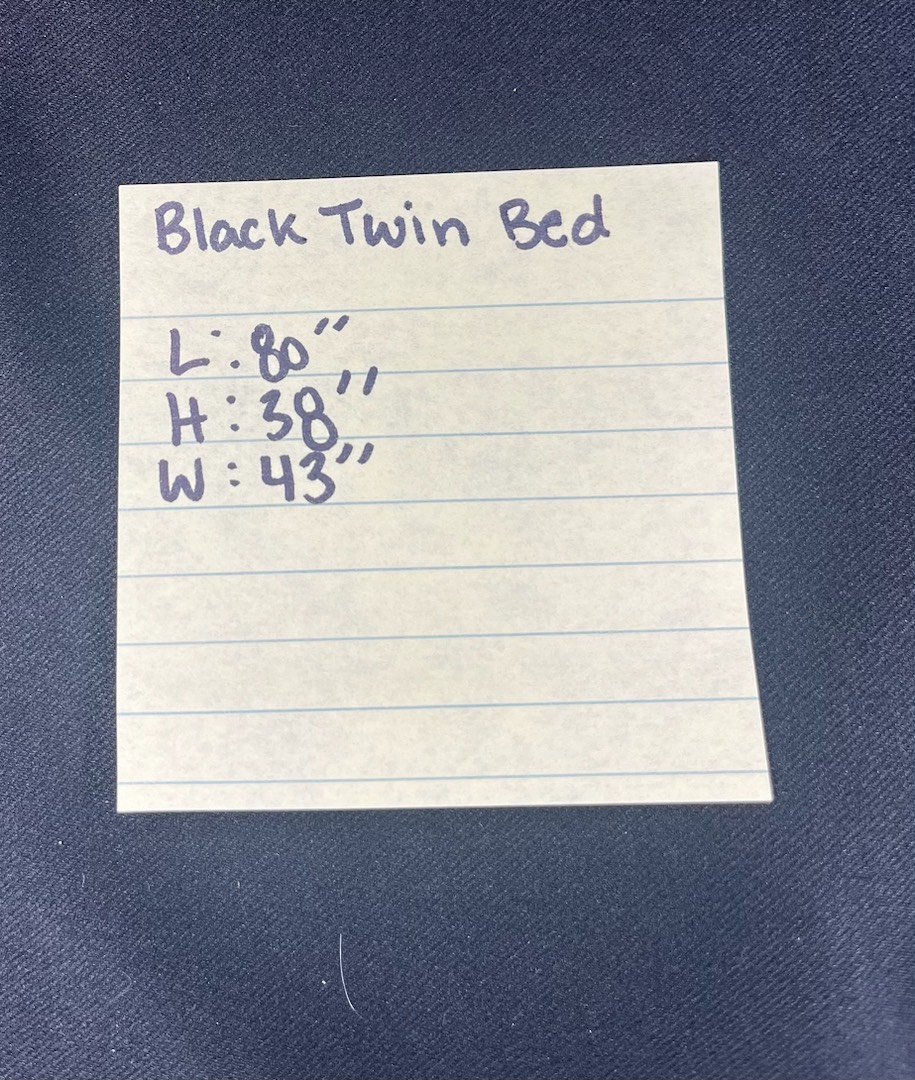 Black Twin Bed
L: 80"
H: 38"
W: 43"